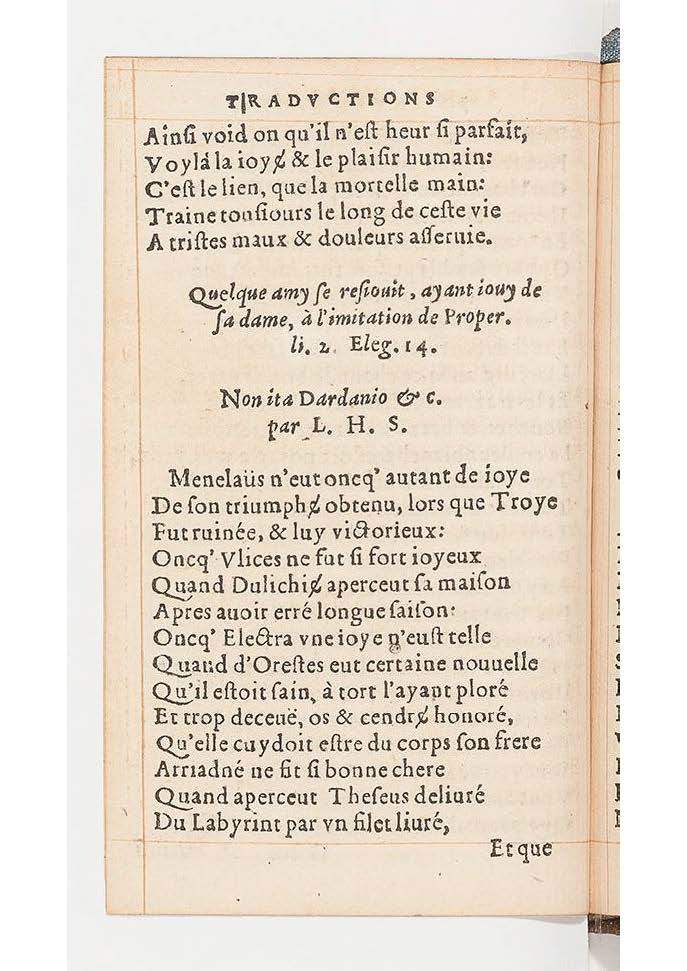 TRADVCTIONS
Ainſi void on qu'il n'eſt heur ſi parfait,
Voylà la ioyɇ & le plaiſir humain:
C'eſt le lien, que la mortelle main:
Traine touſiours le long de ceſte vie
A triſtes maux & douleurs aſſeruie.
Quelque amy ſe reſiouit, ayant iouy de
ſa dame, à l'imitation de Proper.
li. 2. Eleg. 14.
Non ita Dardanio & c.
par L. H. S.
Menelaüs n'eut oncq' autant de ioye
De ſon triumphɇ obtenu, lors que Troye
Fut ruinée, & luy victorieux:
Oncq' Vlices ne fut ſi fort ioyeux
Quand Dulichiɇ aperceut ſa maiſon
Apres auoir erré longue ſaiſon:
Oncq' Electra vne ioye n'euſt telle
Quand d'Oreſtes eut certaine nouuelle
Qu'il eſtoit ſain, à tort l'ayant ploré
Et trop deceuë, os & cendrɇ honoré,
Qu'elle cuydoit eſtre du corps ſon frere
Arriadné ne fit ſi bonne chere
Quand aperceut Theſeus deliuré
Du Labyrint par vn filet liuré,
Et que